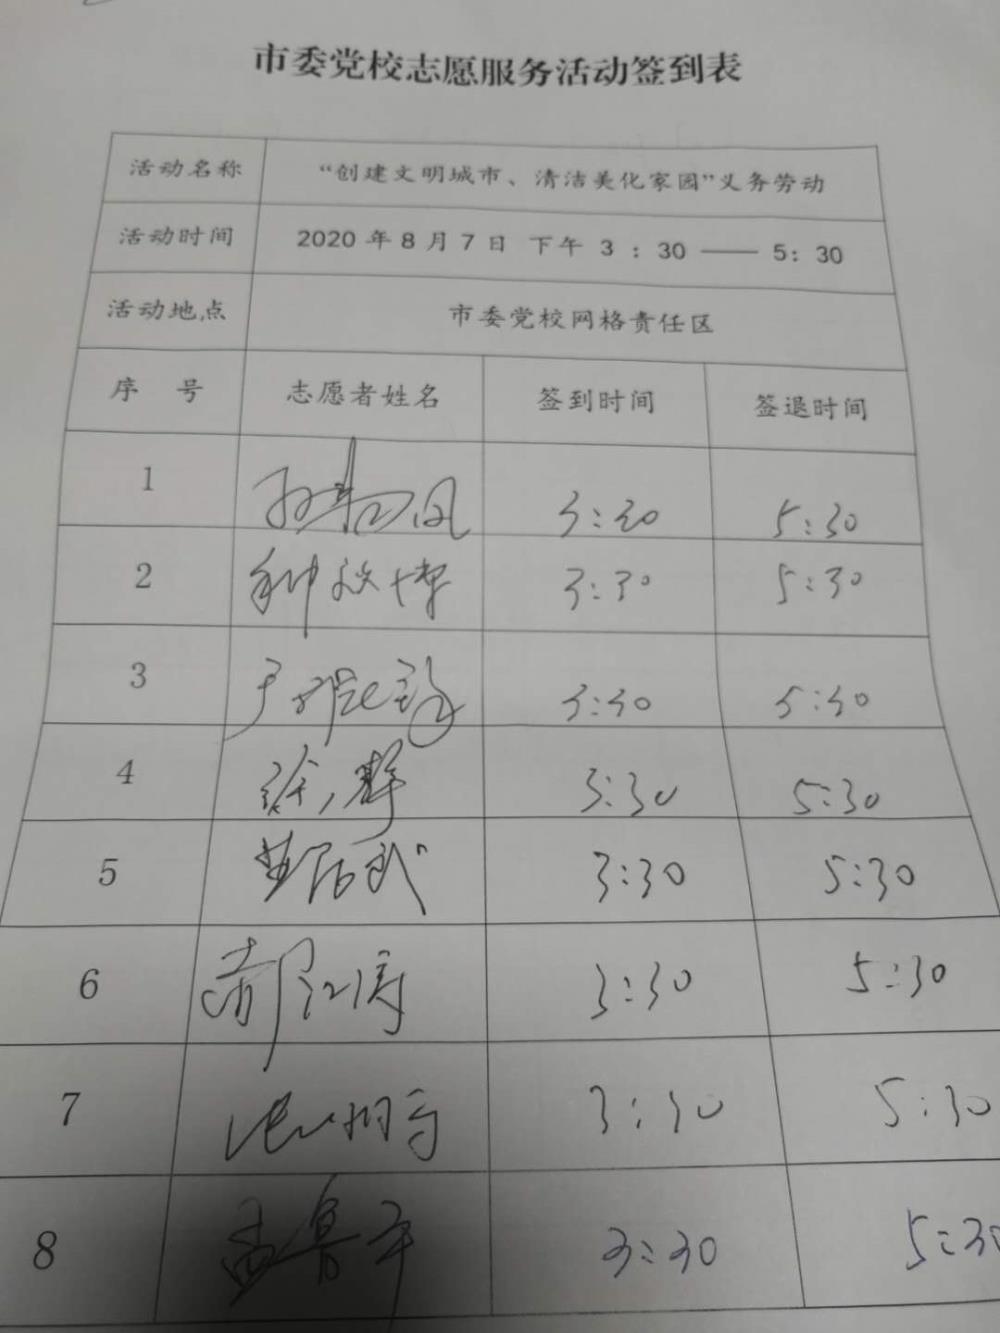 市委党校志愿服务活动签到表
活动名称 “创建文明城市、清洁美化家园”义务劳动
活动时间 2020 年 8 月 7 日 下午 3 : 30 —— 5: 30
活动地点 市委党校网格责任区
序 号 志愿者姓名 签到时间 签退时间
1 3:30 5:30
2 3:30 5:30
3 3:30 5:30
4 徐静 3:30 5:30
5 3:30 5:30
6 郝江涛 3:30 5:30
7 3:30 5:30
8 孟鲁军 3:30 5:30